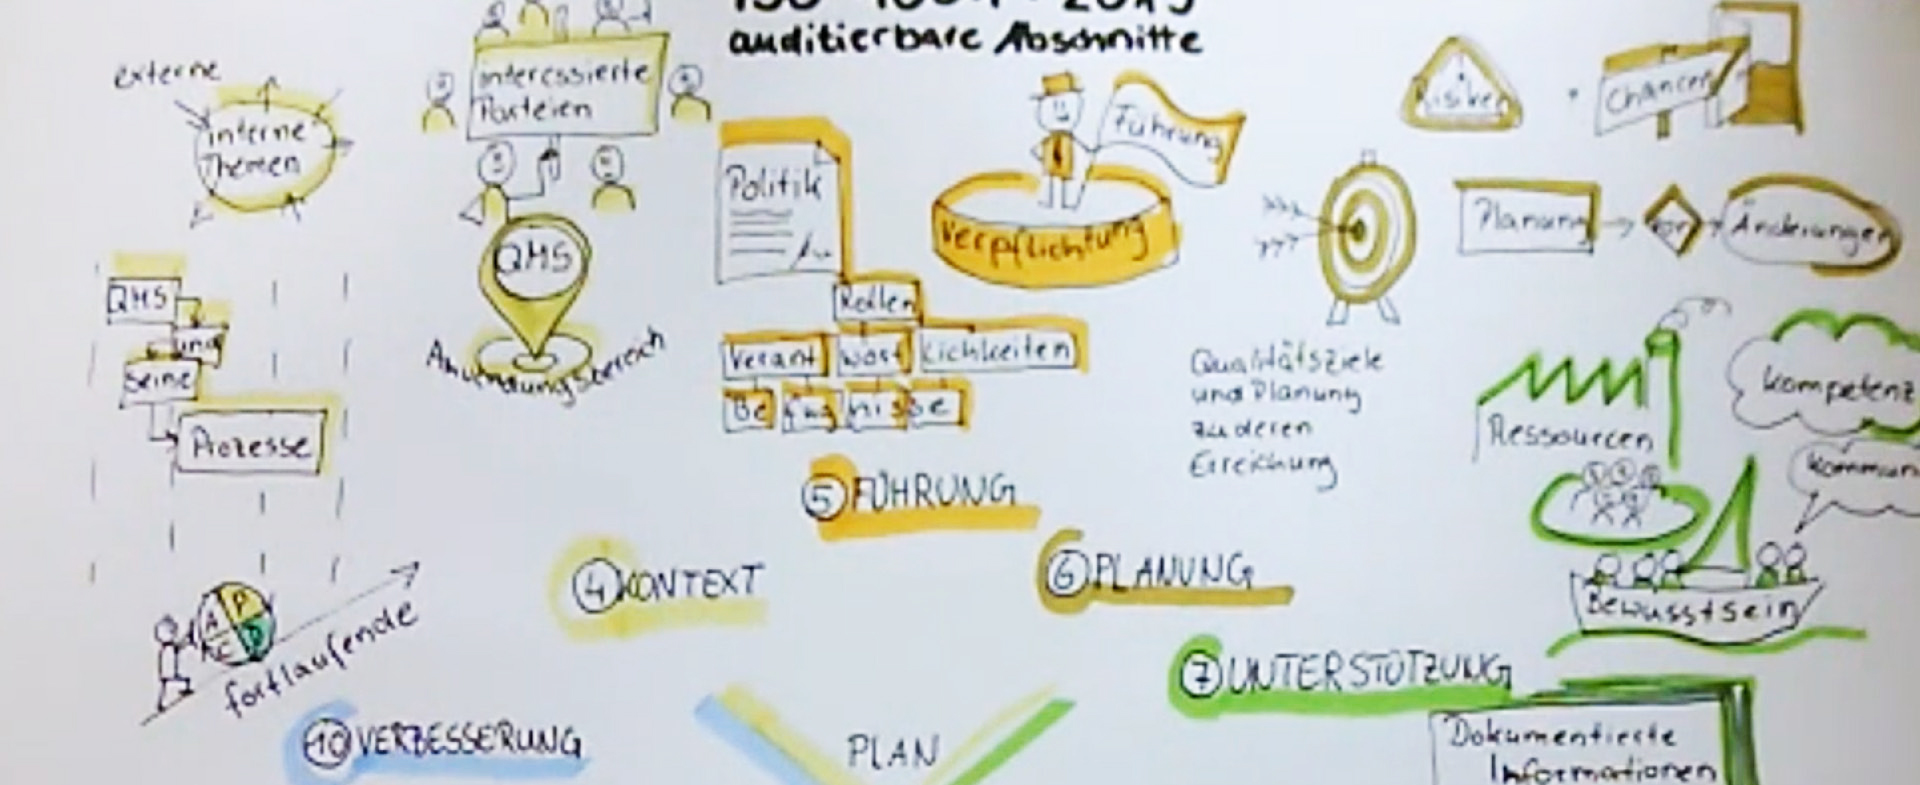 auditierbare Abschnitte
externe
interne
Themen
Interessierte
Parteien
QMS
Anwendungsbereich
QMS
und
seine
Prozesse
Politik
Führung
Verpflichtung
Rollen
Verant wort lichkeiten
Be fug nisse
Risiken
Chancen
Planung
von
Änderungen
Qualitätsziele
und Planung
zu deren
Erreichung
Ressourcen
Kompetenz
Kommun
Bewusstsein
5 FÜHRUNG
4 KONTEXT
6 PLANUNG
7 UNTERSTÜTZUNG
Dokumentierte
Informationen
A P
C D
fortlaufende
10 VERBESSERUNG
PLAN